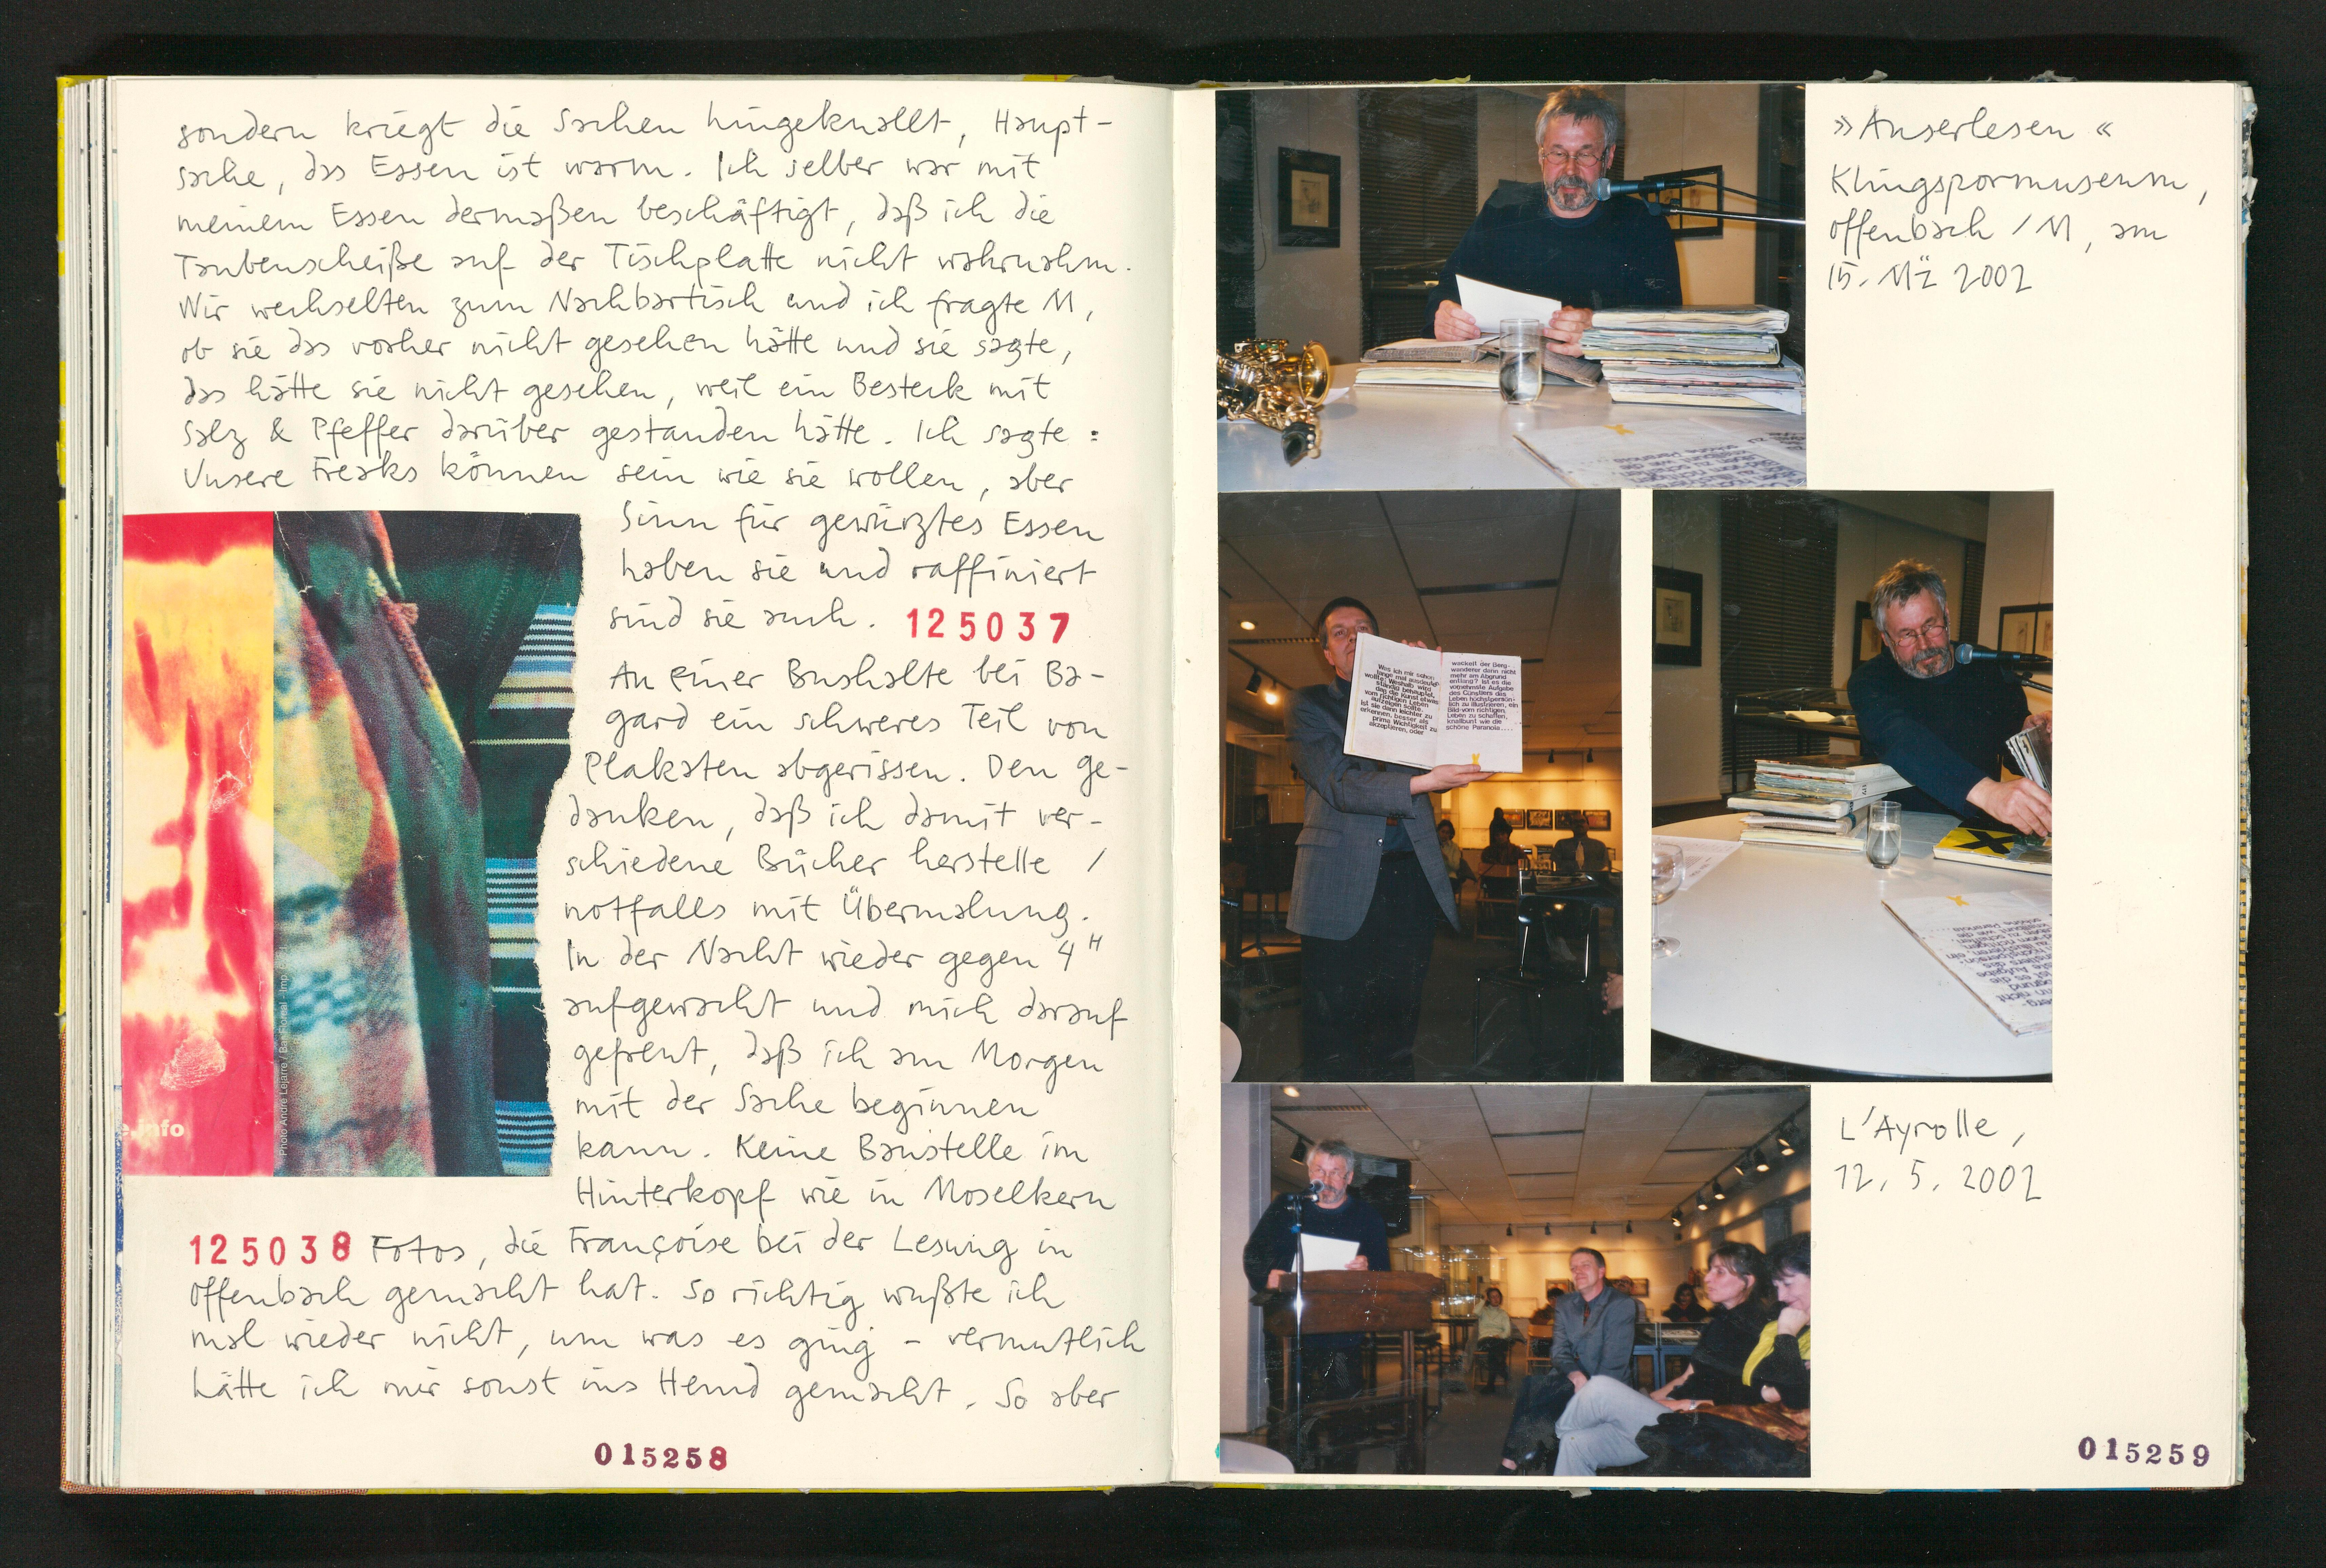 sondern kriegt die Sachen hingeknallt, Haupt-
sache, das Essen ist warm. Ich selber war mit
meinem Essen dermaßen beschäftigt, daß ich die
Taubenscheiße auf der Tischplatte nicht wahrnahm.
Wir wechselten zum Nachbartisch und ich fragte M,
ob sie das vorher nicht gesehen hätte und sie sagte,
das hätte sie nicht gesehen, weil ein Besteck mit
Salz & Pfeffer darüber gestanden hätte. Ich sagte:
Unsere Freaks können sein wie sie wollen, aber
Sinn für gewürztes Essen
haben sie und raffiniert
sind sie auch. 125037
An einer Bushalte bei Ba-
gard ein schweres Teil von
Plakaten abgerissen. Den Ge-
danken, daß ich damit ver-
schiedene Bücher herstelle /
notfalls mit Übermalung.
In der Nacht wieder gegen 4H
aufgewacht und mich darauf
gefreut, daß ich am Morgen
mit der Sache beginnen
kann. Keine Baustelle im
Hinterkopf wie in Moselkern
125038 Fotos, die Françoise bei der Lesung in
Offenbach gemacht hat. So richtig wußte ich
mal wieder nicht, um was es ging – vermutlich
hätte ich mir sonst ins Hemd gemacht. So aber
015258
e.info
Photo André Lejarre / Bar Floréal - Imp
»Auserlesen«
Klingspormuseum,
Offenbach / M, am
15. MÄ 2002
Was ich mir schon
lange mal ausdeutsch
wollte: Weshalb wird
ständig behauptet,
daß die Kunst etwas
vom richtigen Leben
aufzeigen sollte.
Ist sie dann leichter zu
erkennen, besser als
prima Wichtigkeit zu
akzeptieren, oder
wackelt der Berg-
wanderer dann nicht
mehr am Abgrund
entlang? Ist es die
vornehmste Aufgabe
des Günstlers das
Leben höchstpersön-
lich zu illustrieren, ein
Bild vom richtigen
Leben zu schaffen,
knallbunt wie die
schöne Paranoia....
L'Ayrolle,
12. 5. 2002
015259